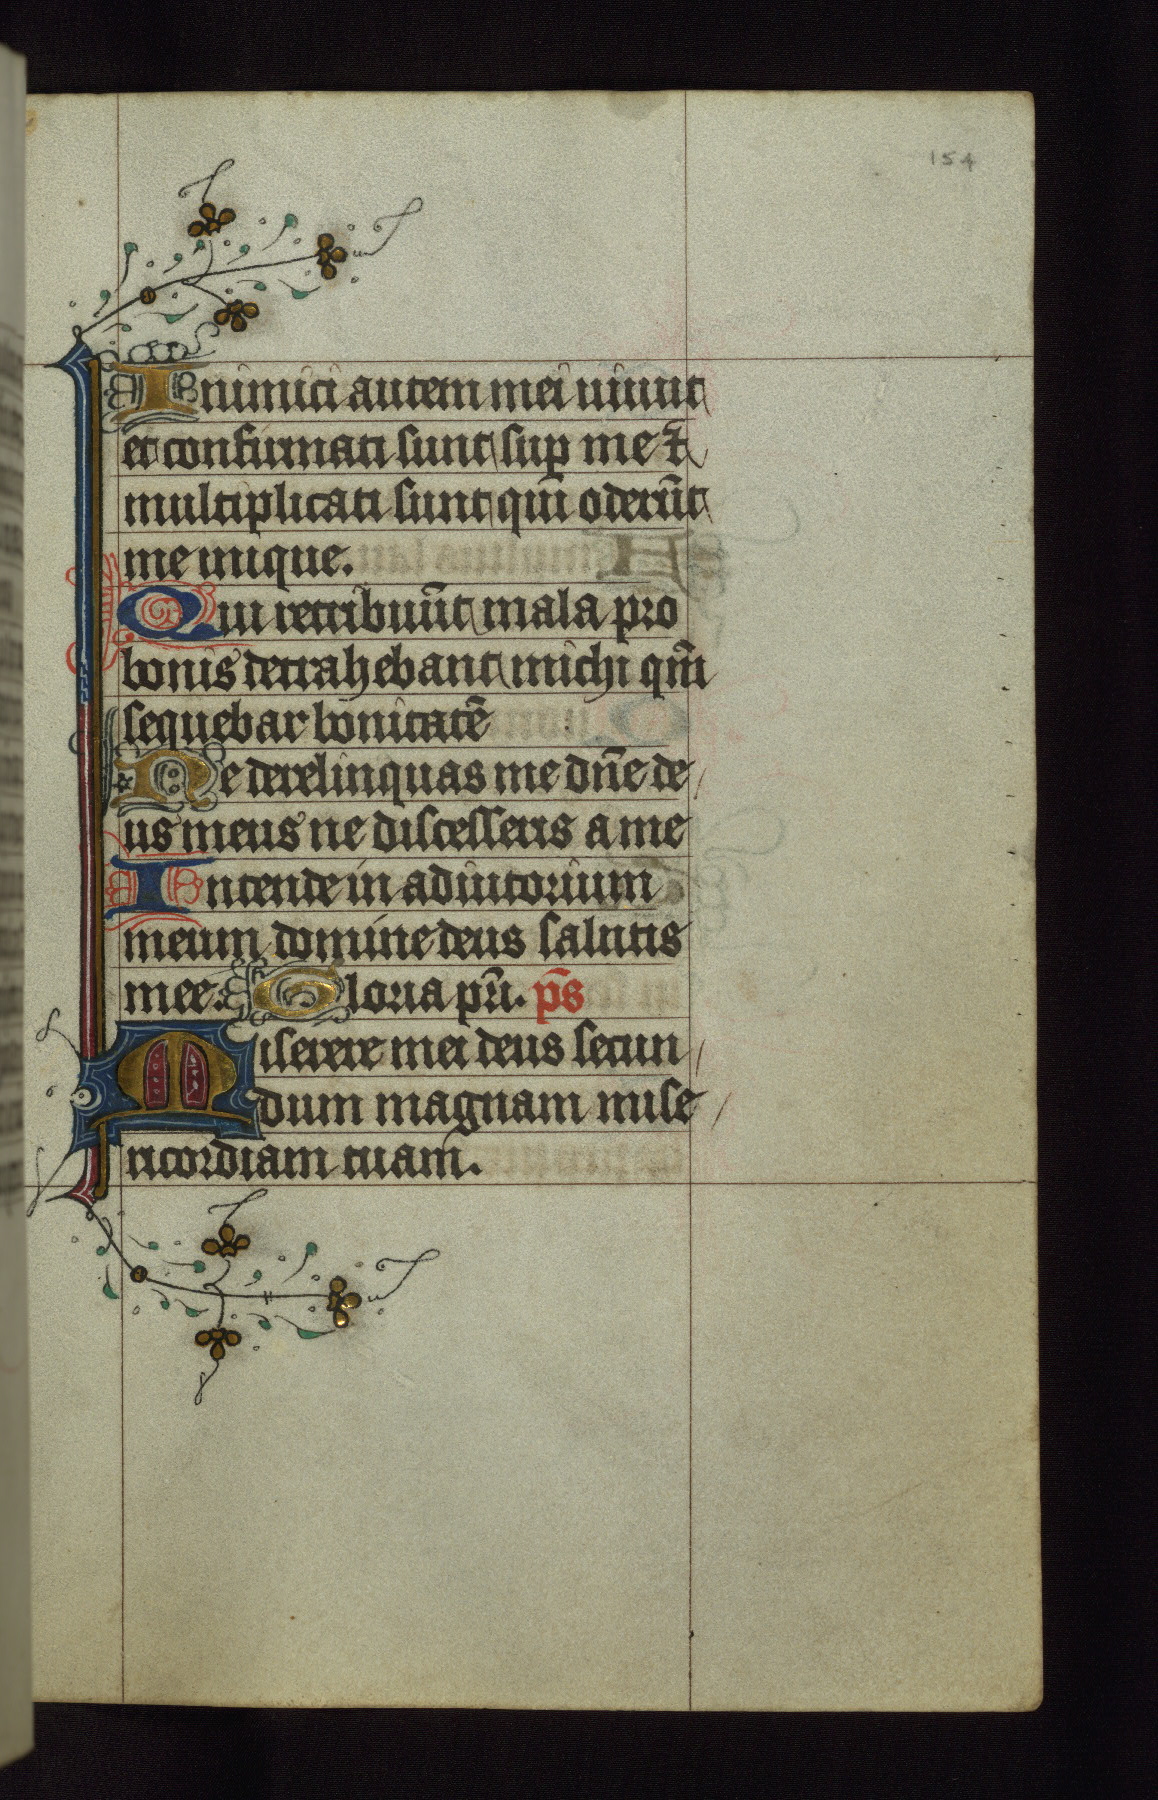 154
Inimici autem mei uiuunt
et confirmati sunt sup me ⁊
multiplicati sunt qm̄ oderūt
me inique.
Qui retribuūt mala pro
bonis detrahebant michi qm̄
sequebar bonitatē
Ne derelinquas me dn̄e de
us meus ne discesseris a me
Intende in adiutorium
meum domine deus salutis
mee. Gloria pr̄i. ps̄
Miserere mei deus secun
dum magnam mise
ricordiam tuam.